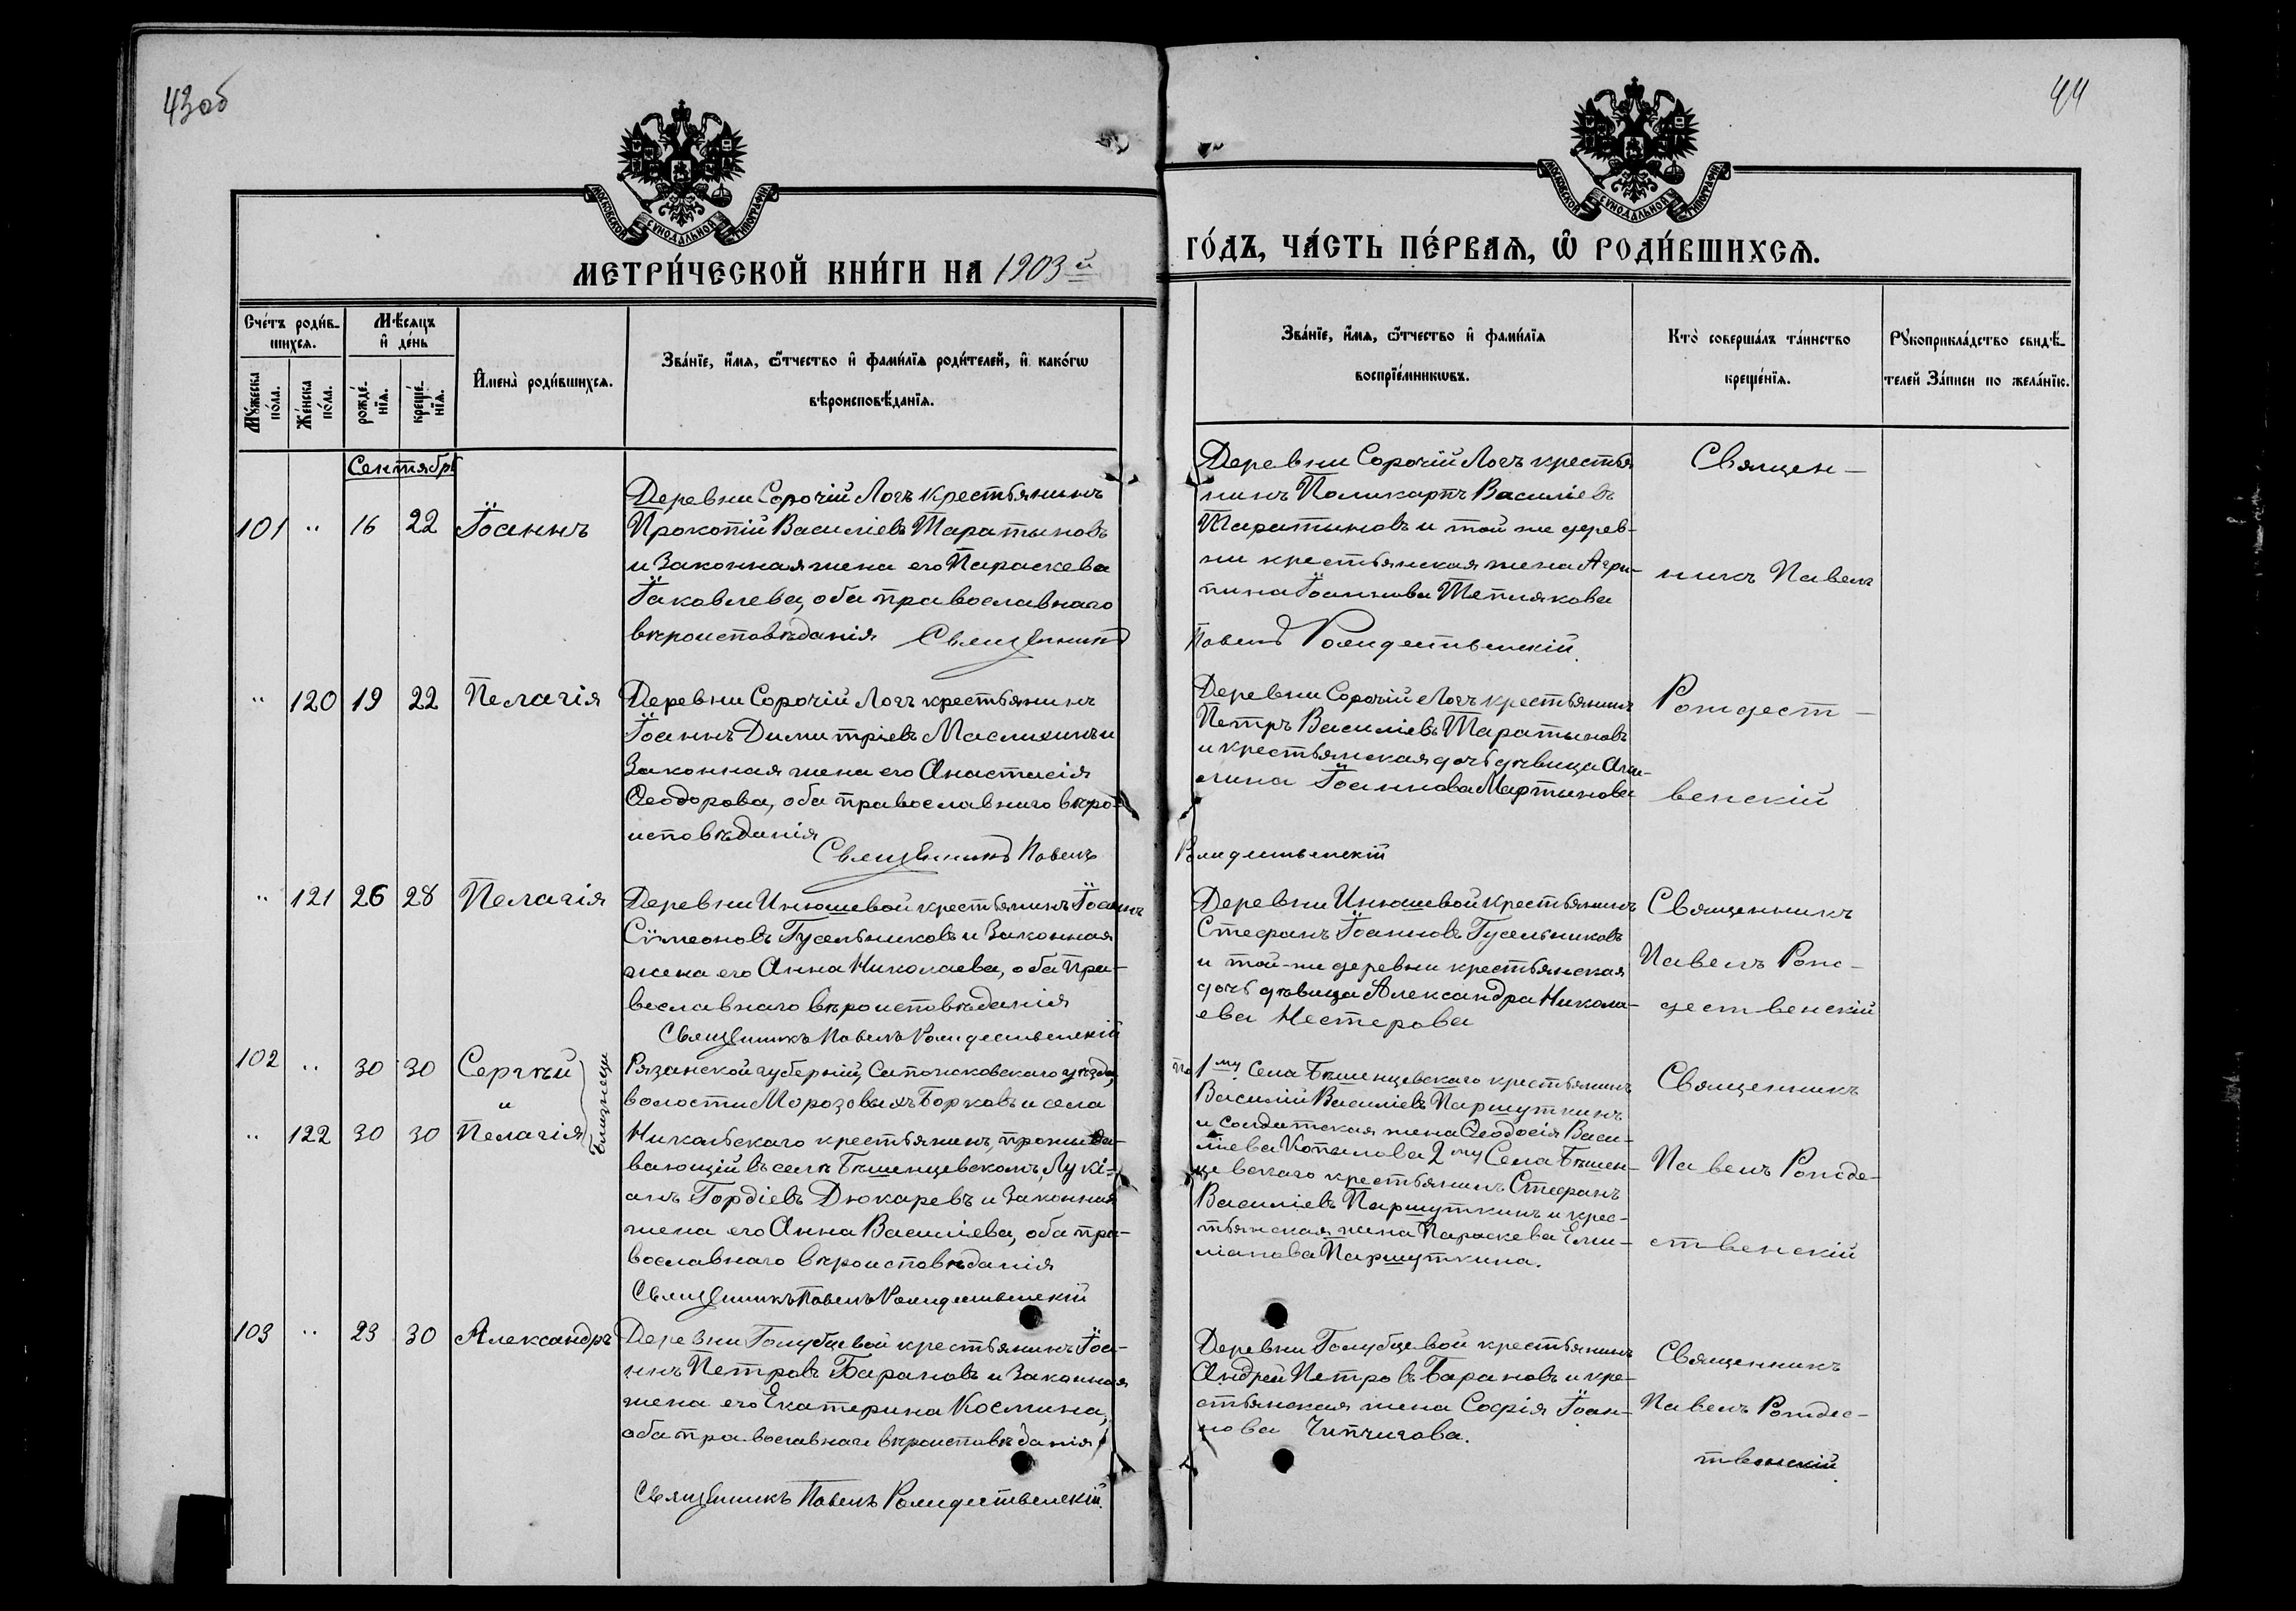 43об
44
МОСКОВСКОЙ СУНОДАЛЬНОЙ ТИПОГРАФІИ
МОСКОВСКОЙ СУНОДАЛЬНОЙ ТИПОГРАФІИ
МЕТРИ́ЧЕСКОЙ КНИ́ГИ НА 1903й
ГО́ДЪ, ЧА́СТЬ ПЕ́РВАѦ, Ѡ҆ РОДИ́ВШИХСѦ.
Сче́тъ роди́в-
шихсѧ.
Мѣ́сѧцъ
и҆ де́нь
Мꙋ́жеска
по́ла.
Же́нска
по́ла.
рожде́-
нїѧ.
креще́-
нїѧ.
И҆мена̀ роди́вшихсѧ.
Зва́нїе, и҆́мѧ, ѻ҆́тчество и҆ фами́лїѧ роди́телей, и҆ како́гѡ
вѣроисповѣ́данїѧ.
Зва́нїе, и҆́мѧ, ѻ҆́тчество и҆ фами́лїѧ
воспрїе́мникѡвъ.
Кто̀ соверша́лъ та́инство
креще́нїѧ.
Рꙋкоприкла́дство свидѣ́-
телей за́писи по жела́нїю.
Сентябрь
101 " 16 22 Іоаннъ
Деревни Сорочій Логъ крестьянинъ
Прокопій Василіевъ Таратыновъ
и законная жена его Параскева
Іаковлева, оба православнаго
вѣроисповѣданія Священникъ
Деревни Сорочій Логъ крестья
нинъ Поликарпъ Василіевъ
Таратыновъ и той же дерев-
ни крестьянская жена Агри-
пина Іоаннова Теплякова
Павелъ Рождественскій.
Священ-
никъ Павелъ
" 120 19 22 Пелагія
Деревни Сорочій Логъ крестьянинъ
Іоаннъ Димитріевъ Маслихинъ и
законная жена его Анастасія
Ѳеодорова, оба православнаго вѣро-
исповѣданія
Священникъ Павелъ
Деревни Сорочій Логъ крестьянинъ
Петръ Василіевъ Таратыновъ
и крестьянская дочь дѣвица
Іоаннова Мартынова
Рождественскій
Рождест-
венскій
" 121 26 28 Пелагія
Деревни Инюшевой крестьянинъ Іоаннъ
Сѵмеоновъ Гусельниковъ и законная
жена его Анна Николаева, оба пра-
вославнаго вѣроисповѣданія
Священникъ Павелъ Рождественскій
Деревни Инюшевой крестьянинъ
Стефанъ Іоанновъ Гусельниковъ
и той-же деревни крестьянская
дочь дѣвица Александра Никола-
ева Нестерова
Священникъ
Павелъ Рож-
дественскій
102 " 30 30 Сергѣй
и
" 122 30 30 Пелагія
Близнецы
Рязанской губерній, Сапожковскаго уѣзда,
волости Морозовыхъ Борковъ и села
Никольскаго крестьянинъ, прожи-
вающій въ селѣ Бѣшенцевскомъ, Лукі-
анъ Гордіевъ Дюкаревъ и законная
жена его Анна Василіева, оба пра-
вославнаго вѣроисповѣданія
Священникъ Павелъ Рождественскій
По 1му. Села Бѣшенцевскаго крестьянинъ
Василій Василіевъ Паршуткинъ
и солдатская жена Ѳеодосія Васи-
ліева Копылова 2му Села Бѣшен-
цевскаго крестьянинъ Стефанъ
Василіевъ Паршуткинъ и крес-
тьянская жена Параскева Еми-
ліанова Паршуткина.
Священникъ
Павелъ Рожде-
ственскій
103 " 23 30 Александръ
Деревни Голубцевой крестьянинъ Іоа-
ннъ Петровъ Барановъ и законная
жена его Екатерина Космина,
оба православнаго вѣроисповѣданія
Священникъ Павелъ Рождественскій.
Деревни Голубцевой крестьянинъ
Андрей Петровъ Барановъ и кре-
стьянская жена Софія Іоан-
нова Чипчигова.
Священникъ
Павелъ Рождес-
твенскій.